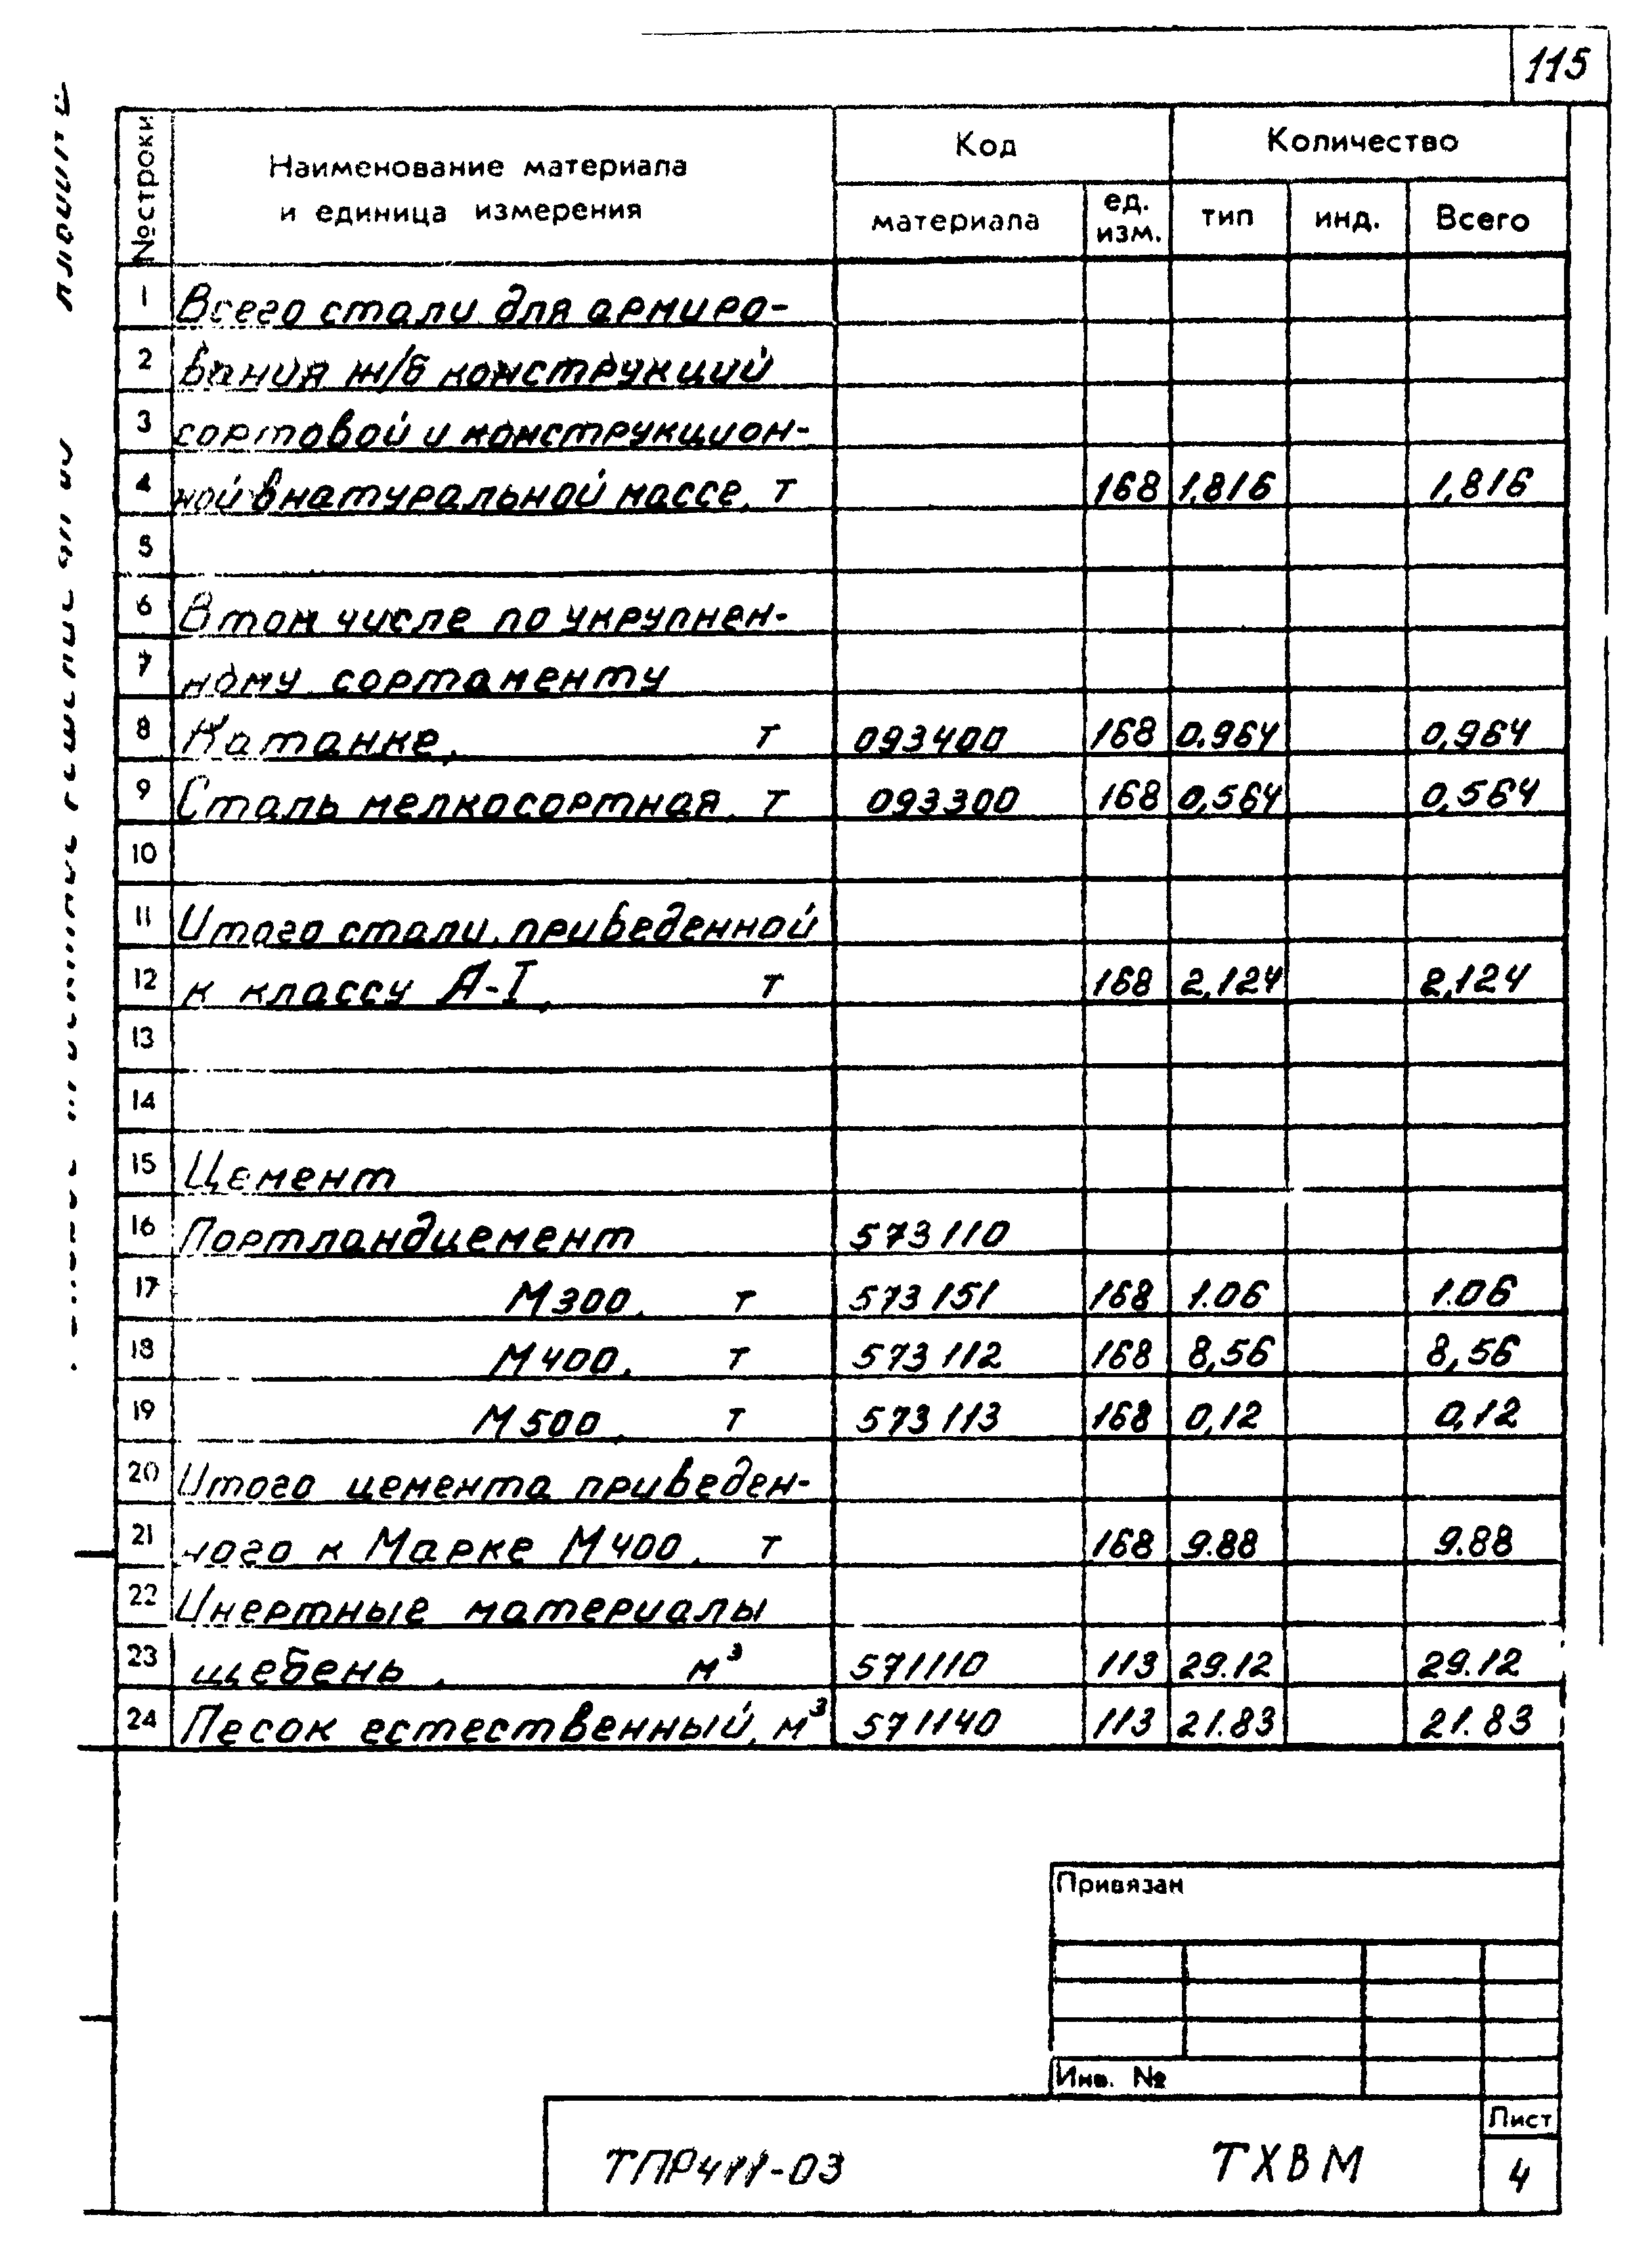 115
№ строки
Наименование материала
и единица измерения
Код
Количество
материала
ед.
изм.
тип
инд.
Всего
1 Всего стали для армиро-
2 вания ж/б конструкций
3 сортовой и конструкцион-
4 ной в натуральной массе, т 168 1,816 1,816
5
6 В том числе по укрупнен-
7 ному сортаменту
8 Катанке, т 093400 168 0.964 0,964
9 Сталь мелкосортная, т 093300 168 0,564 0,564
10
11 Итого стали, приведенной
12 к классу А-I, т 168 2,124 2,124
13
14
15 Цемент
16 Портландцемент 573110
17 М300, т 573151 168 1.06 1.06
18 М400, т 573112 168 8,56 8,56
19 М500, т 573113 168 0,12 0,12
20 Итого цемента приведен-
21 ного к Марке М400, т 168 9.88 9.88
22 Инертные материалы
23 щебень, м³ 571110 113 29.12 29.12
24 Песок естественный, м³ 571140 113 21.83 21.83
Привязан
Инв. №
ТПР411-03
ТХВМ
Лист
4